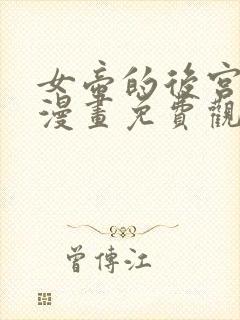 女帝的後宮
漫畫免費觀
曾傳江